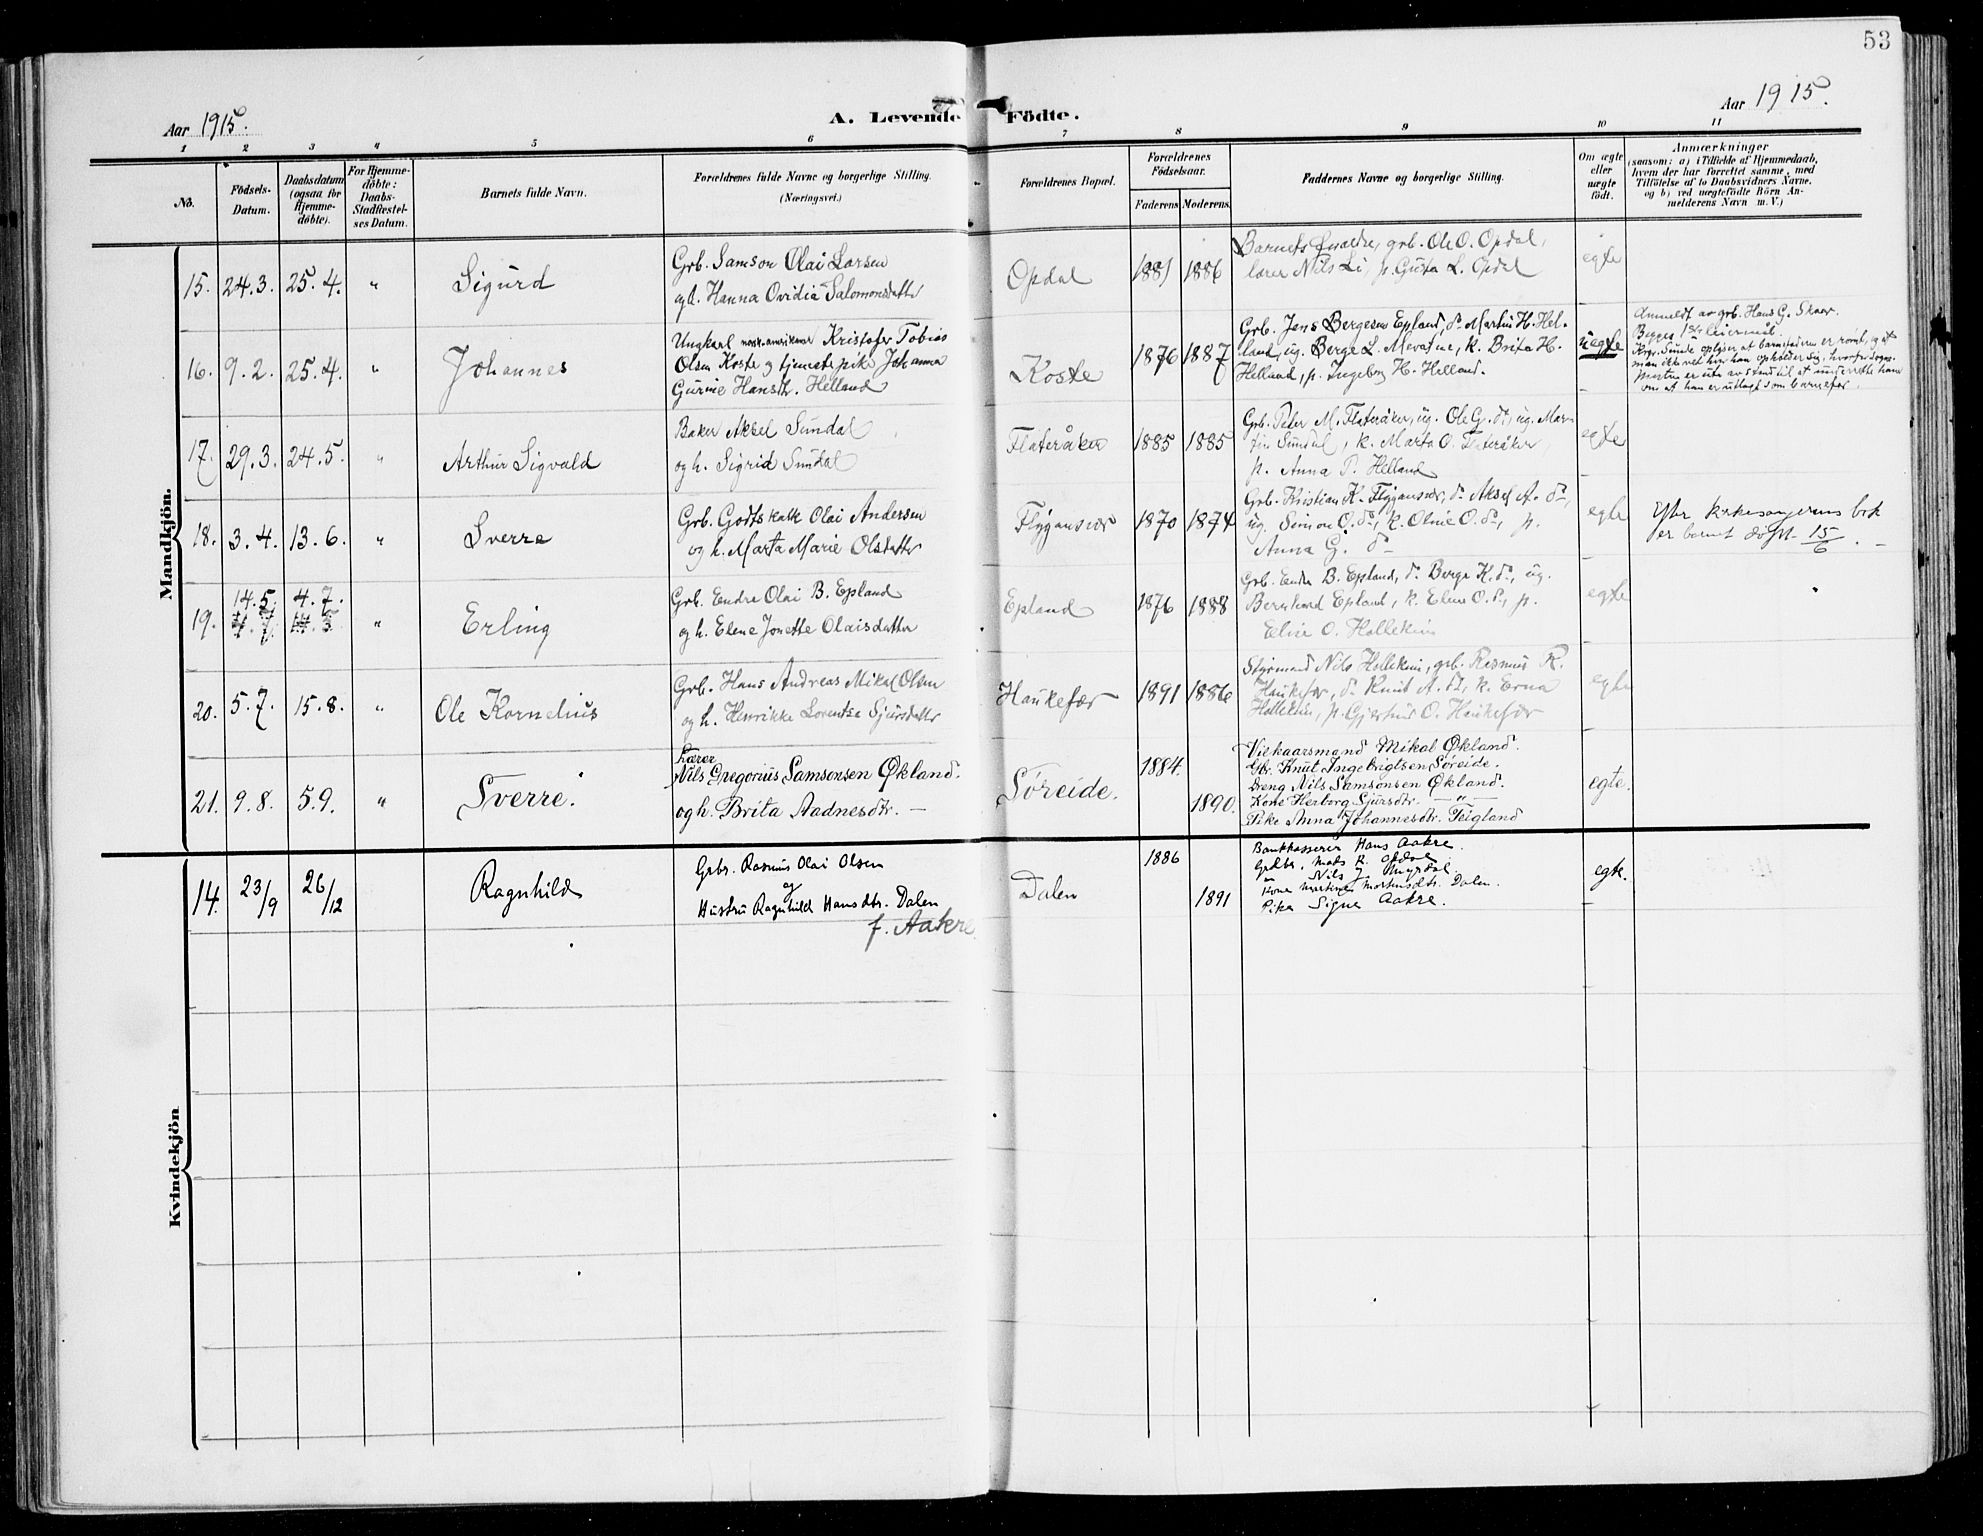 53
Aar 1915.
A. Levende Födte.
Aar 1915.
1 2 3 4 5 6 7 8 9 10 11
No.
Födsels-
Datum.
Daabsdatum
(ogsaa for
Hjemme-
döbte).
For Hjemme-
döbte:
Daabs-
Stadfæstel-
ses Datum.
Barnets fulde Navn.
Forældrenes fulde Navne og borgerlige Stilling.
(Næringsvei.)
Forældrenes Bopæl.
Forældrenes
Födselsaar.
Faderens
Moderens.
Faddernes Navne og borgerlige Stilling.
Om ægte
eller
uægte
födt.
Anmærkninger
(saasom: a) i Tilfælde af Hjemmedaab,
hvem der har forrettet samme, med
Tilföielse af to Daabsvidners Navne,
og b) ved uægtefödte Börn An-
melderens Navn m. V.)
Mandkjön.
15. 24.3. 25.4. " Sigurd
Grb. Samson Olai Larsen
og h. Hanna Ovidia Salomonsdatter
Opdal 1881 1886
Barnets forældre, grb. Ole O. Opdal,
lærer Nils Li, p. Gusta L. Opdal
egte
16. 9.2. 25.4. " Johannes
Ungkarl norsk-amerikaner Kristofer Tobias
Olsen Koste og tjenestepike Johanna
Gurine Hansdtr. Helland
Koste 1876 1887
Grb. Jens Bergesen Epland, do Martin H. Hel-
land, ug. Berge L. Mevatne, k. Brita H.
Helland, p. Ingeborg H. Helland.
uegte
Anmeldt av grb. Hans G. Skaar.
Begges 1ste leiermaal.
Krgr. Sunde oplyser at barnefaderen er rømt, og at
man ikke vet hvor han opholder sig, hvorfor sogne-
presten er ute av stand til at underrette ham
om at han er utlagt som barnefar.
17. 29.3. 24.5. " Arthur Sigvald
Baker Aksel Sundal
og h. Sigrid Sundal
Flateråker 1885 1885
Grb. Peter M. Flateråker, ug. Ole G. do, ug. Mar-
tin Sundal, k. Marta O. Flateråker,
p. Anna P. Helland
egte
18. 3.4. 13.6. " Sverre
Grb. Godtskalk Olai Andersen
og h. Marta Marie Olsdatter
Flygansvær 1870 1874
Grb. Kristian K. Flygansvær, do Aksel A. do,
ug. Simon O. do, k. Oline O. do, p.
Anna G. do
egte
Ifør kirkesangerens bok
er barnet døpt 15/6.
19. 14.5. 4.7. " Erling
4.7. 14.5
Grb. Endre Olai B. Epland
og h. Elene Jonette Olaisdatter
Epland 1876 1888
Grb. Endre B. Epland, do Berge K. do, ug.
Bernhard Epland, k. Eline O. do, p.
Eline O. Hollekim
egte
20. 5.7. 15.8. " Ole Kornelius
Grb. Hans Andreas Mikal Olsen
og h. Henrikke Lorentse Sjursdatter
Haukefær 1891 1886
Styrmand Nils Hollekim, grb. Rasmus R.
Haukefær, do Knut A. do, k. Erna
Hollekim, p. Gjertrud O. Haukefær
egte
21. 9.8. 5.9. " Sverre.
Lærer
Nils Gregorius Samsonsen Økland.
og h. Brita Aadnesdtr. —
Søreide. 1884. 1890.
Vilkaarsmand Mikal Økland.
Gbr. Knut Ingebrigtsen Søreide.
Dreng Nils Samsonsen Økland.
Kone Herborg Sjursdtr. — " —
Pike Anna Johannesdtr. Teigland
egte.
Kvindekjön
14. 23/9 26/12 Ragnhild
Grbr. Rasmus Olai Olsen
og
Hustru Ragnhild Hansdtr. Dalen
f. Aakre.
Dalen 1886 1891
Bankkasserer Hans Aakre.
Grdbr. Mads R. Opdal
" Nils J. Myrdal
Kone Martine Mortensdtr. Dalen.
Pike Signe Aakre.
egte.